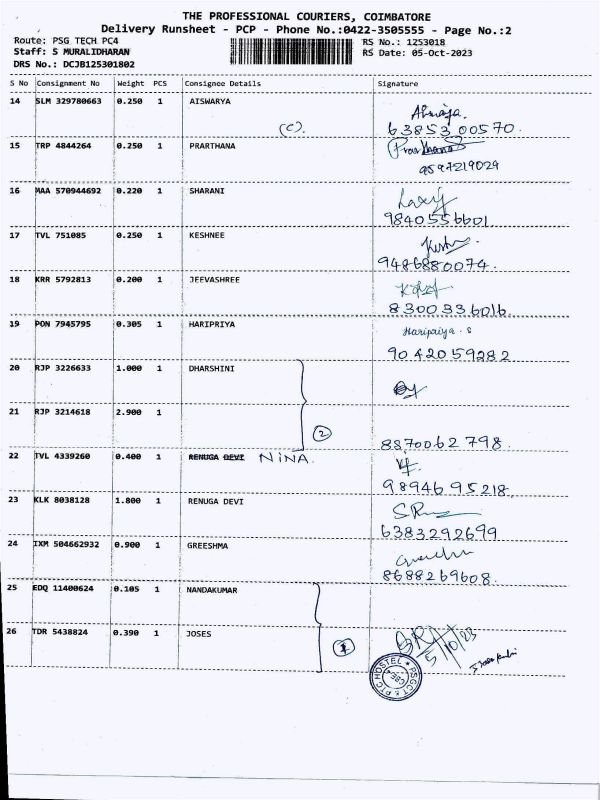 THE PROFESSIONAL COURIERS, COIMBATORE
Delivery Runsheet - PCP - Phone No.:0422-3505555 - Page No.:2
Route: PSG TECH PC4 RS No.: 1253018
Staff: S MURALIDHARAN RS Date: 05-Oct-2023
DRS No.: DCJB125301802
S No Consignment No Weight PCS Consignee Details Signature
14 SLM 329780663 0.250 1 AISWARYA
(C). 63853 00570.
15 TRP 4844264 0.250 1 PRARTHANA Prarthana
9597219029
16 MAA 570944692 0.220 1 SHARANI
9840556601
17 TVL 751085 0.250 1 KESHNEE
9486880074.
18 KRR 5792813 0.200 1 JEEVASHREE
8300336016
19 PON 7945795 0.305 1 HARIPRIYA Haripriya . S
9042059282
20 RJP 3226633 1.000 1 DHARSHINI
21 RJP 3214618 2.900 1
2 8870062798.
22 TVL 4339260 0.400 1 RENUGA DEVI NINA.
9894695218.
23 KLK 8038128 1.800 1 RENUGA DEVI
6383292699
24 IXM 504662932 0.900 1 GREESHMA
8688269608.
25 EDQ 11400624 0.105 1 NANDAKUMAR
26 TDR 5438824 0.390 1 JOSES
1 5/10/23
HOSTEL * PSGCT & PTC
CBE-4